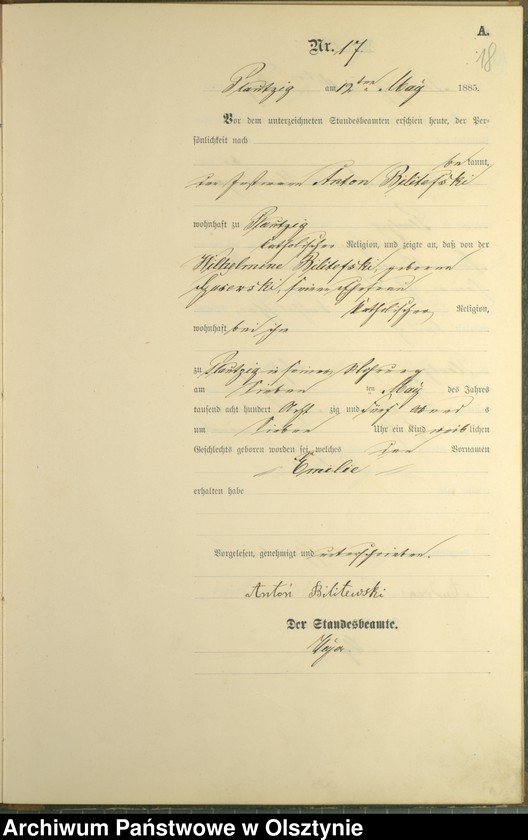 A.
18
Nr. 17
Plautzig am 12ten May 1885.
Vor dem unterzeichneten Standesbeamten erschien heute, der Per-
sönlichkeit nach
bekannt,
der Anton Bilitefski
wohnhaft zu Plautzig
katholischer Religion, und zeigte an, daß von der
Wilhelmine Bilitefski, geborene
seiner Ehefrau
katholischer Religion,
wohnhaft bei ihm
zu Plautzig in seiner Wohnung
am Sieben ten May des Jahres
tausend acht hundert Acht zig und fünf Abends
um Sieben Uhr ein Kind weiblichen
Geschlechts geboren worden sei, welches den Vornamen
Emelie
erhalten habe
Vorgelesen, genehmigt und unterschrieben.
Anton Bilitewski
Der Standesbeamte.
Archiwum Państwowe w Olsztynie